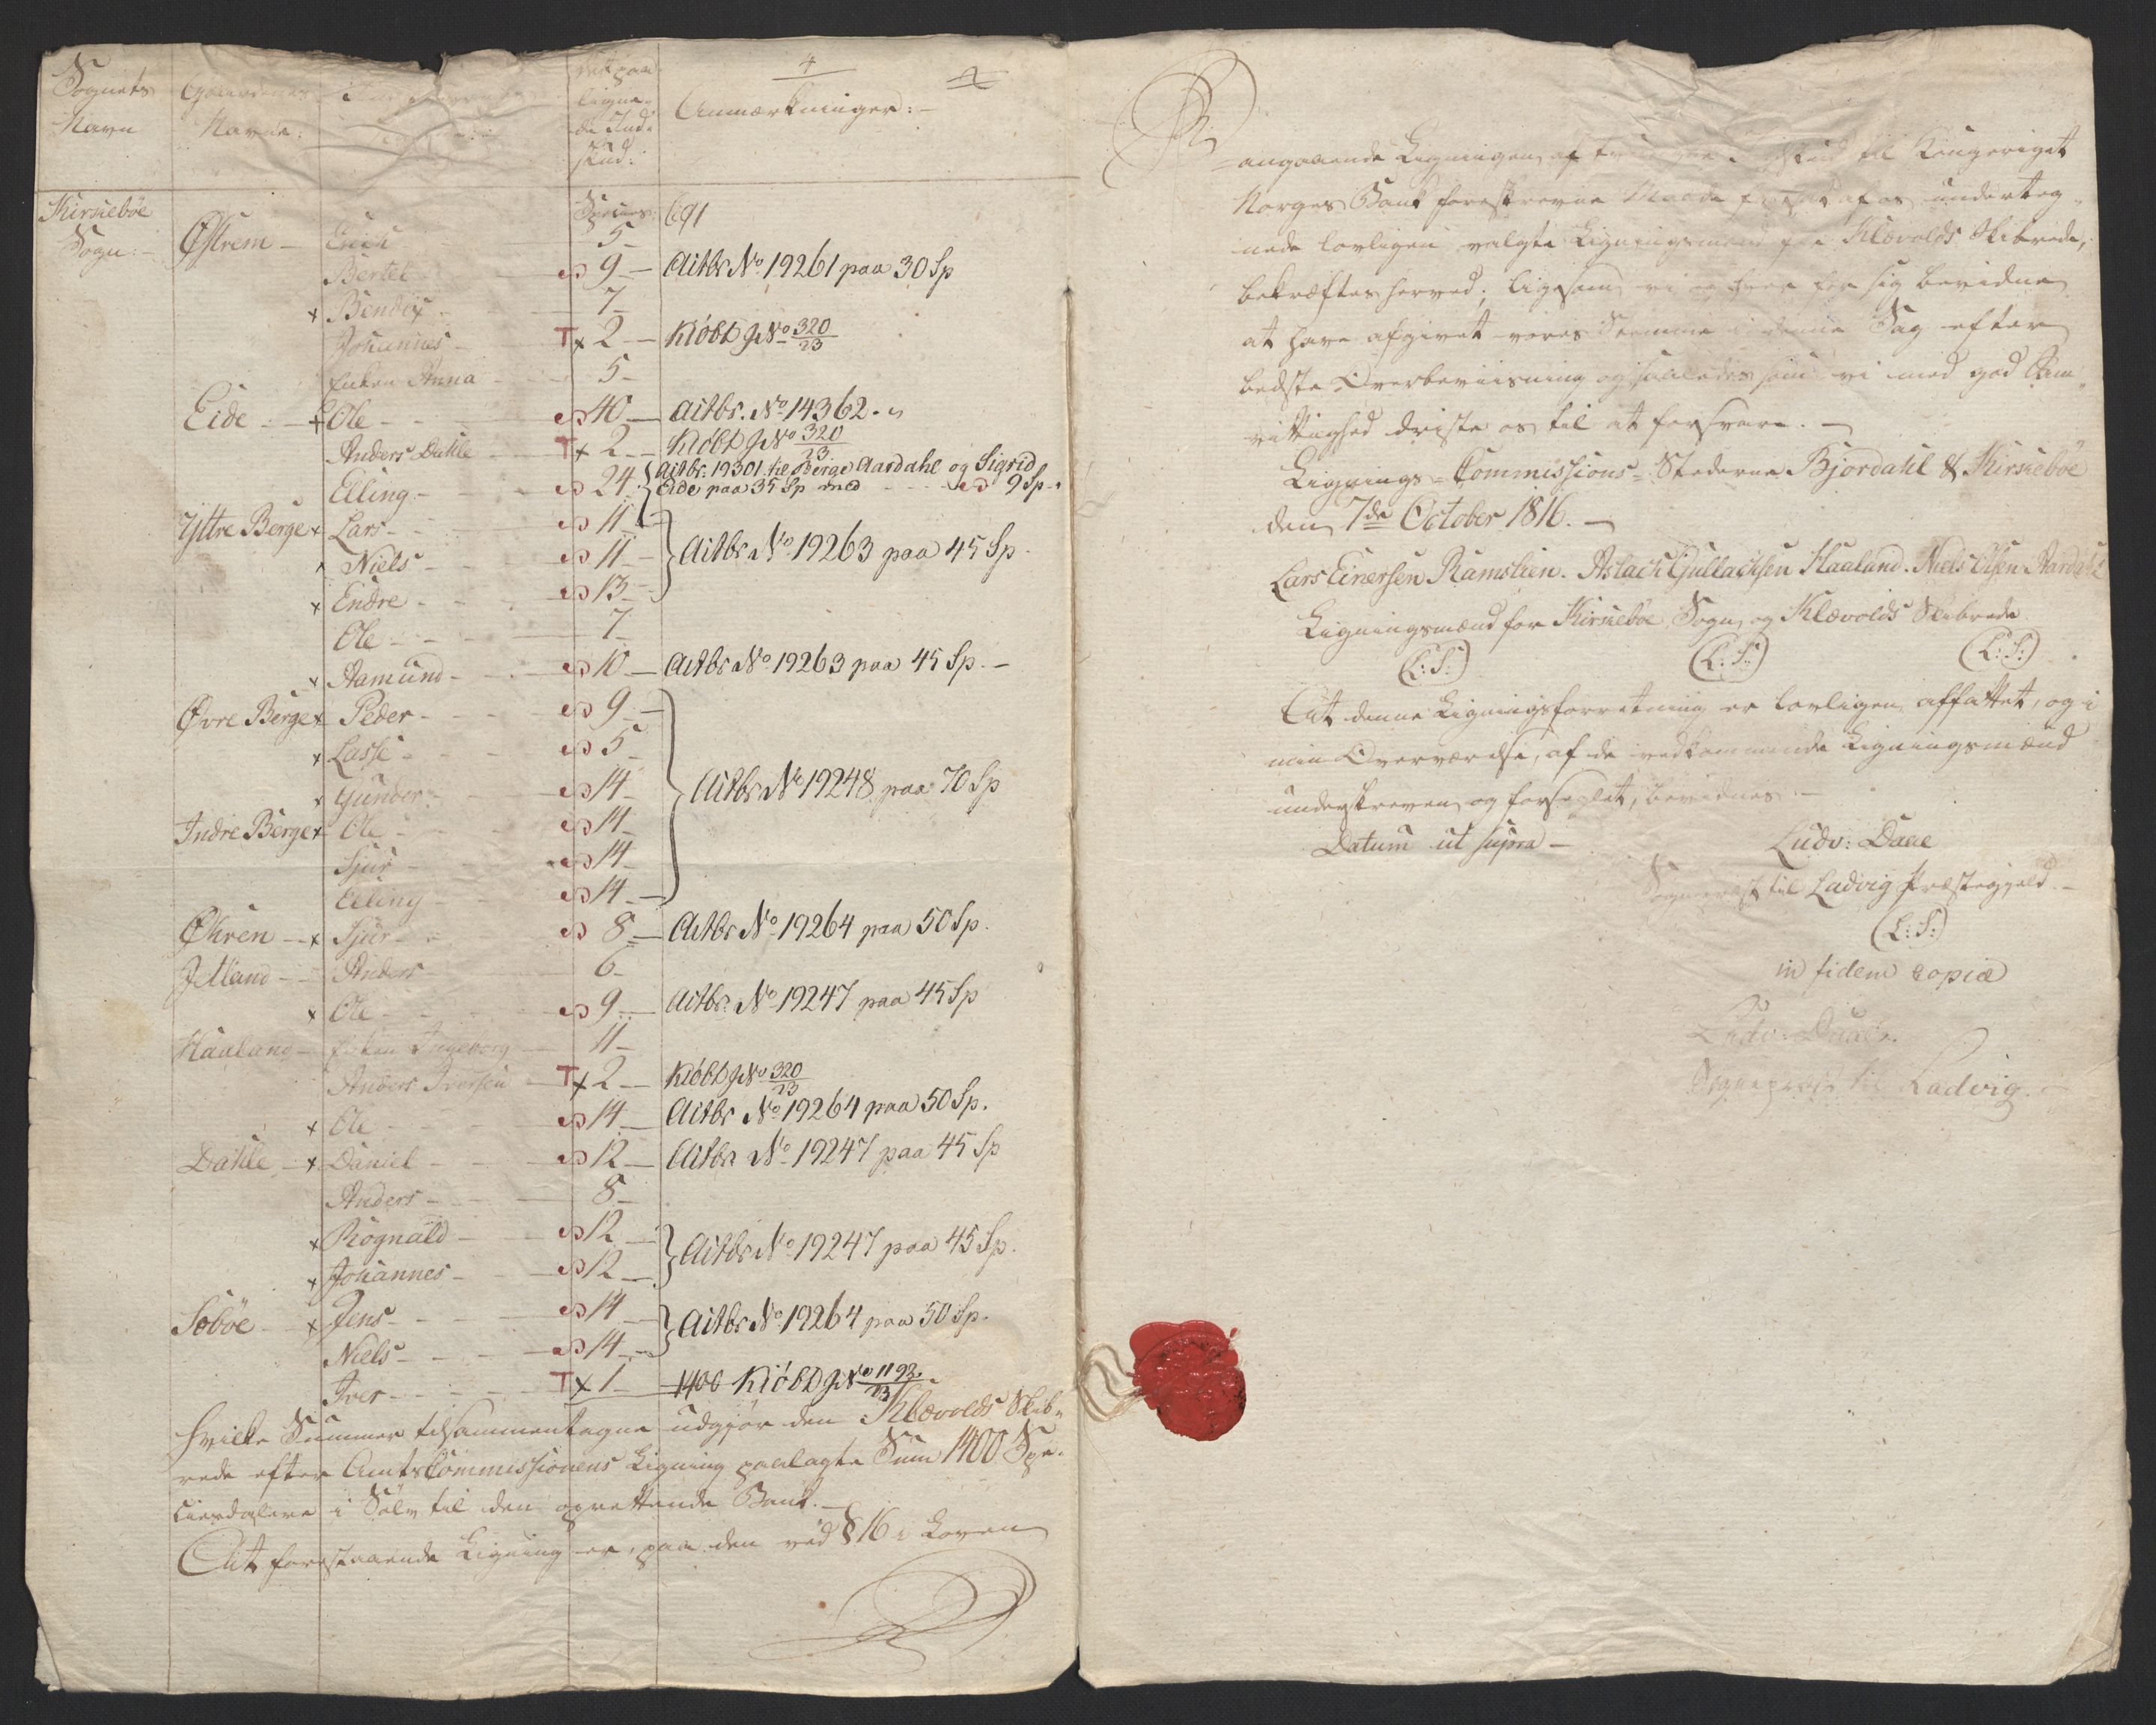 4
Sognets Navn
Gaardenes Navne:
det paa lignede Indskud:
Anmærkninger:-
Kirkebøe Sogn:-
Species:
Østrem - Erich - 5-
Bertel - 9 - Actbr No 19261 paa 30 Sp
x Bendix - 7-
Johannes - Tx 2 - Kiøbt J No 320/23
Enken Anna - 5-
Eide - Ole - 40 - Actbr. No 14362.
Anders Dahle - Tx 2 - Kiøbt J No 320/23
Elling - 24. { Actbr: 19301 til Berge Aardahl og Sigrid
Eide paa 35 Sp med - 9 Sp.
Yttre Berge x Lars - 11 -
x Niels - 11 - } Actbr No 19263 paa 45 Sp.
x Endre - 13 -
Ole - 7-
x Aamund - 10 - Actbr No 19263 paa 45 Sp. -
Øvre Berge x Peder - 9 -
x Lasse - 5 -
x Gunder - 14 - } Actbr No 19248 paa 70 Sp
Indre Berge x Ole - 14 -
Sjur - 14 -
Elling - 14 -
Øhren - x Sjur - 8 - Actbr No 19264 paa 50 Sp.
Jetland - Anders - 6-
x Ole - 9 - Actbr. No 19247 paa 45 Sp
Haaland - Enken Ingeborg - 11-
Anders Iversen - Tx 2 - Kiøbt J No 320/23
x Ole - 14 - Actbr No 19264 paa 50 Sp.
Dahle - x Daniel - 12 - Actbr No 19247 paa 45 Sp
Anders - 8-
x Rognald - 12 -
x Johannes - 12 - } Actbr No 19247 paa 45 Sp.
Søbøe - x Jens - 14 -
Niels - 14 - } Actbr No 19264 paa 50 Sp.
Iver - Tx 1 - 1400 Kiøbt J No 1193/23
hvilke Summer tilsammentagne udgjør den Klævolds Skib-
rede efter AmtsCommissionens Ligning paalagte Sum 1400 Spe-
ciesdalere i Sølv til den oprettende Bank.-
At forestaaende Ligning er, paa den ved § 16 i Loven
angaaende Ligningen af Indskud til Kongeriget
Norges Bank foreskrevne Maade af os underteg-
nede lovligen valgte Ligningsmænd for Klævolds Skibrede,
bekræftes herved; ligesom vi og hver for sig bevidne
at have afgivet vores Stemme i denne Sag efter
bedste Overbeviisning og saaledes som vi med god Sam-
vittighed driste os til at forsvare. -
Lignings-Commissions-Stederne Bjordahl & Kirkebøe
den 7de October 1816. -
Lars Einersen Ramslien. Aslack Gullachsen Haaland. Niels Olsen Aardahl
Ligningsmænd for Kirkebøe Sogn, og Klævolds Skibrede
(L:S:) (L:S:) (L:S:)
At denne Ligningsforretning er lovligen affattet, og i
min Overværelse, af de vedkommende Ligningsmænd
underskreven og forseglet, bevidnes. -
Datum ut supra - Ludv: Daae
Sognepræst til Ladvig Præstegjeld. -
(L:S:)
in fidem copiæ
Ludv: Daae.
Sognepræst til Ladvig. -